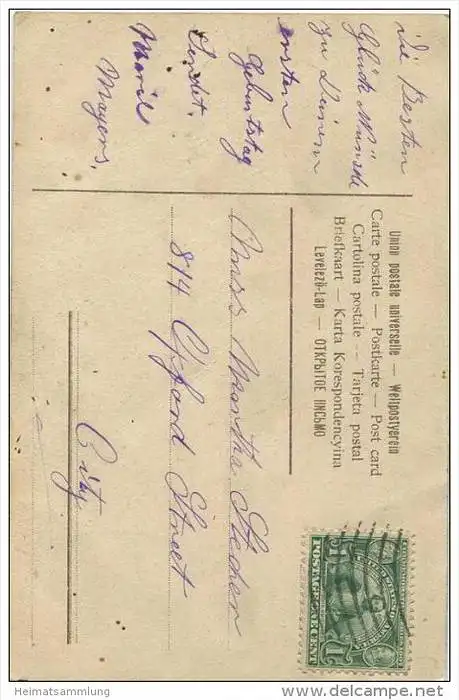 die Besten
Glück Wünsche
zu Deinem
ersten
Geburtstag
Sendet.
Marie
Mayers.
Union postale universelle — Weltpostverein
Carte postale — Postkarte — Post card
Cartolina postale — Tarjeta postal
Briefkaart — Karta Korespondencyina
Levelező-Lap — ОТКРЫТОЕ ПИСЬМО
Miss Martha
814 Street
City
POSTAGE ONE CENT
Heimatsammlung
www.delcampe.net